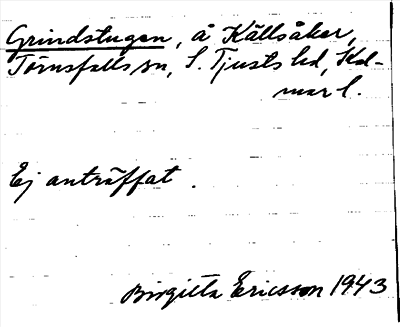 Grindstugan, å Källsåker,
Törnsfalls sn, S. Tjusts hd, Kal-
mar l.
Ej anträffat.
Birgitta Ericsson 1943